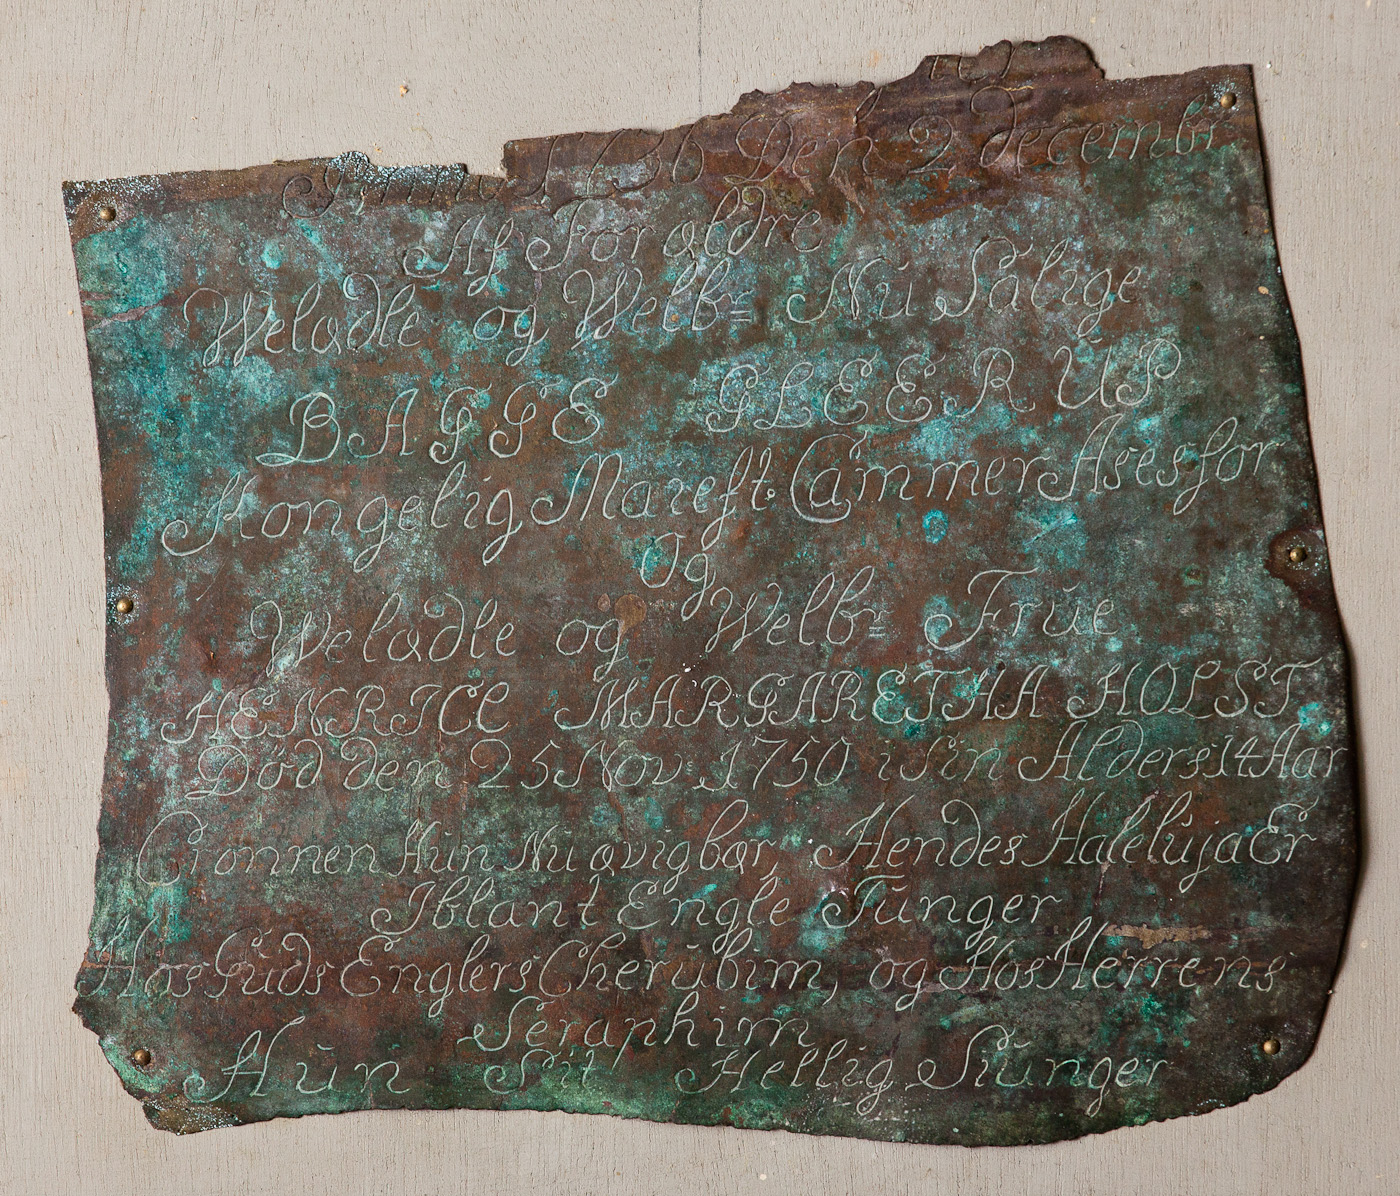 Anno 1736 Den 2 decembr
Af Forældre
Welædle og Welbr Nú Salige
BAGGE GLEERÚP
Kongelig Mareft: Cammer Asessor
Og
Welædle og Welbr Frúe
HENRICE MARGARETHA HOLST
Død den 25 Nov: 1750 i Sin Alders 14 Aar
Cronnen Hún Nú ævig bær Hendes Haleluja Er
Iblant Engle Túnger
Hos Gúds Englers Cherúbim, og Hos Herrens
Seraphim
Hún Sit Hellig Siúnger